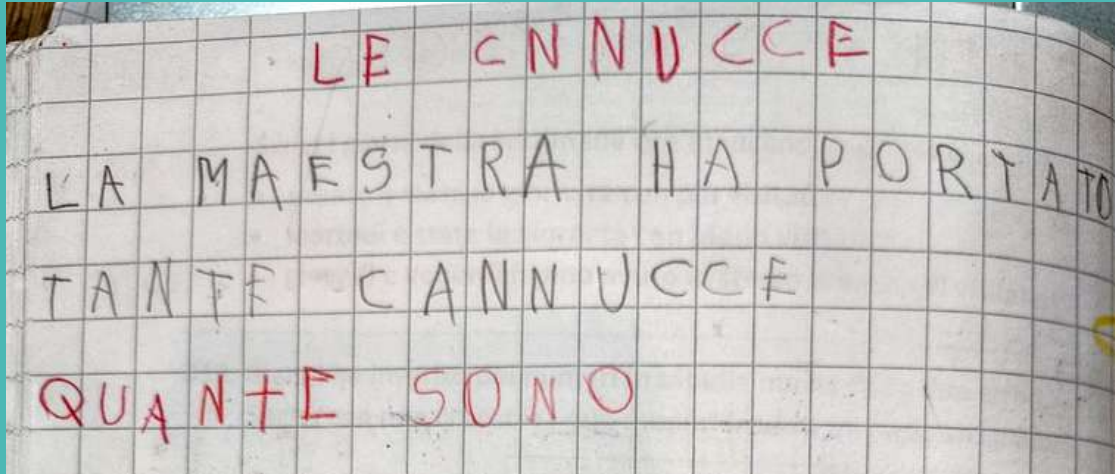 LE CNNUCCE
LA MAESTRA HA PORTATO
TANTE CANNUCCE
QUANTE SONO